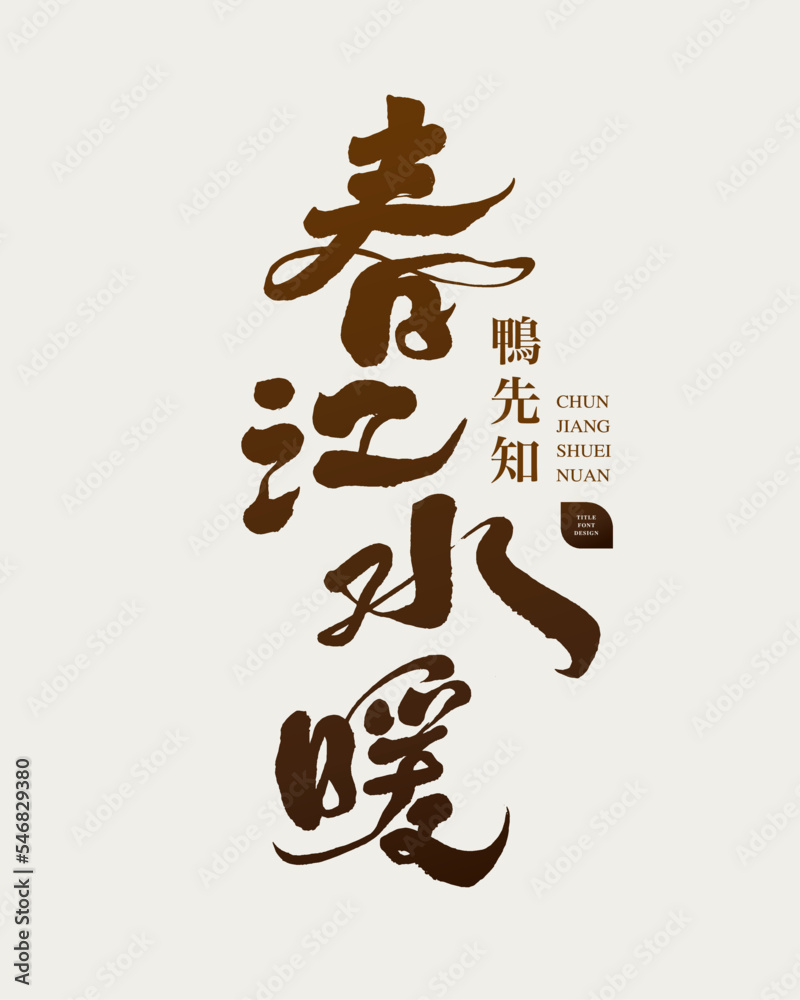 春江水暖
鴨先知
CHUN
JIANG
SHUEI
NUAN
TITLE
FONT
DESIGN
Adobe Stock | #546829380